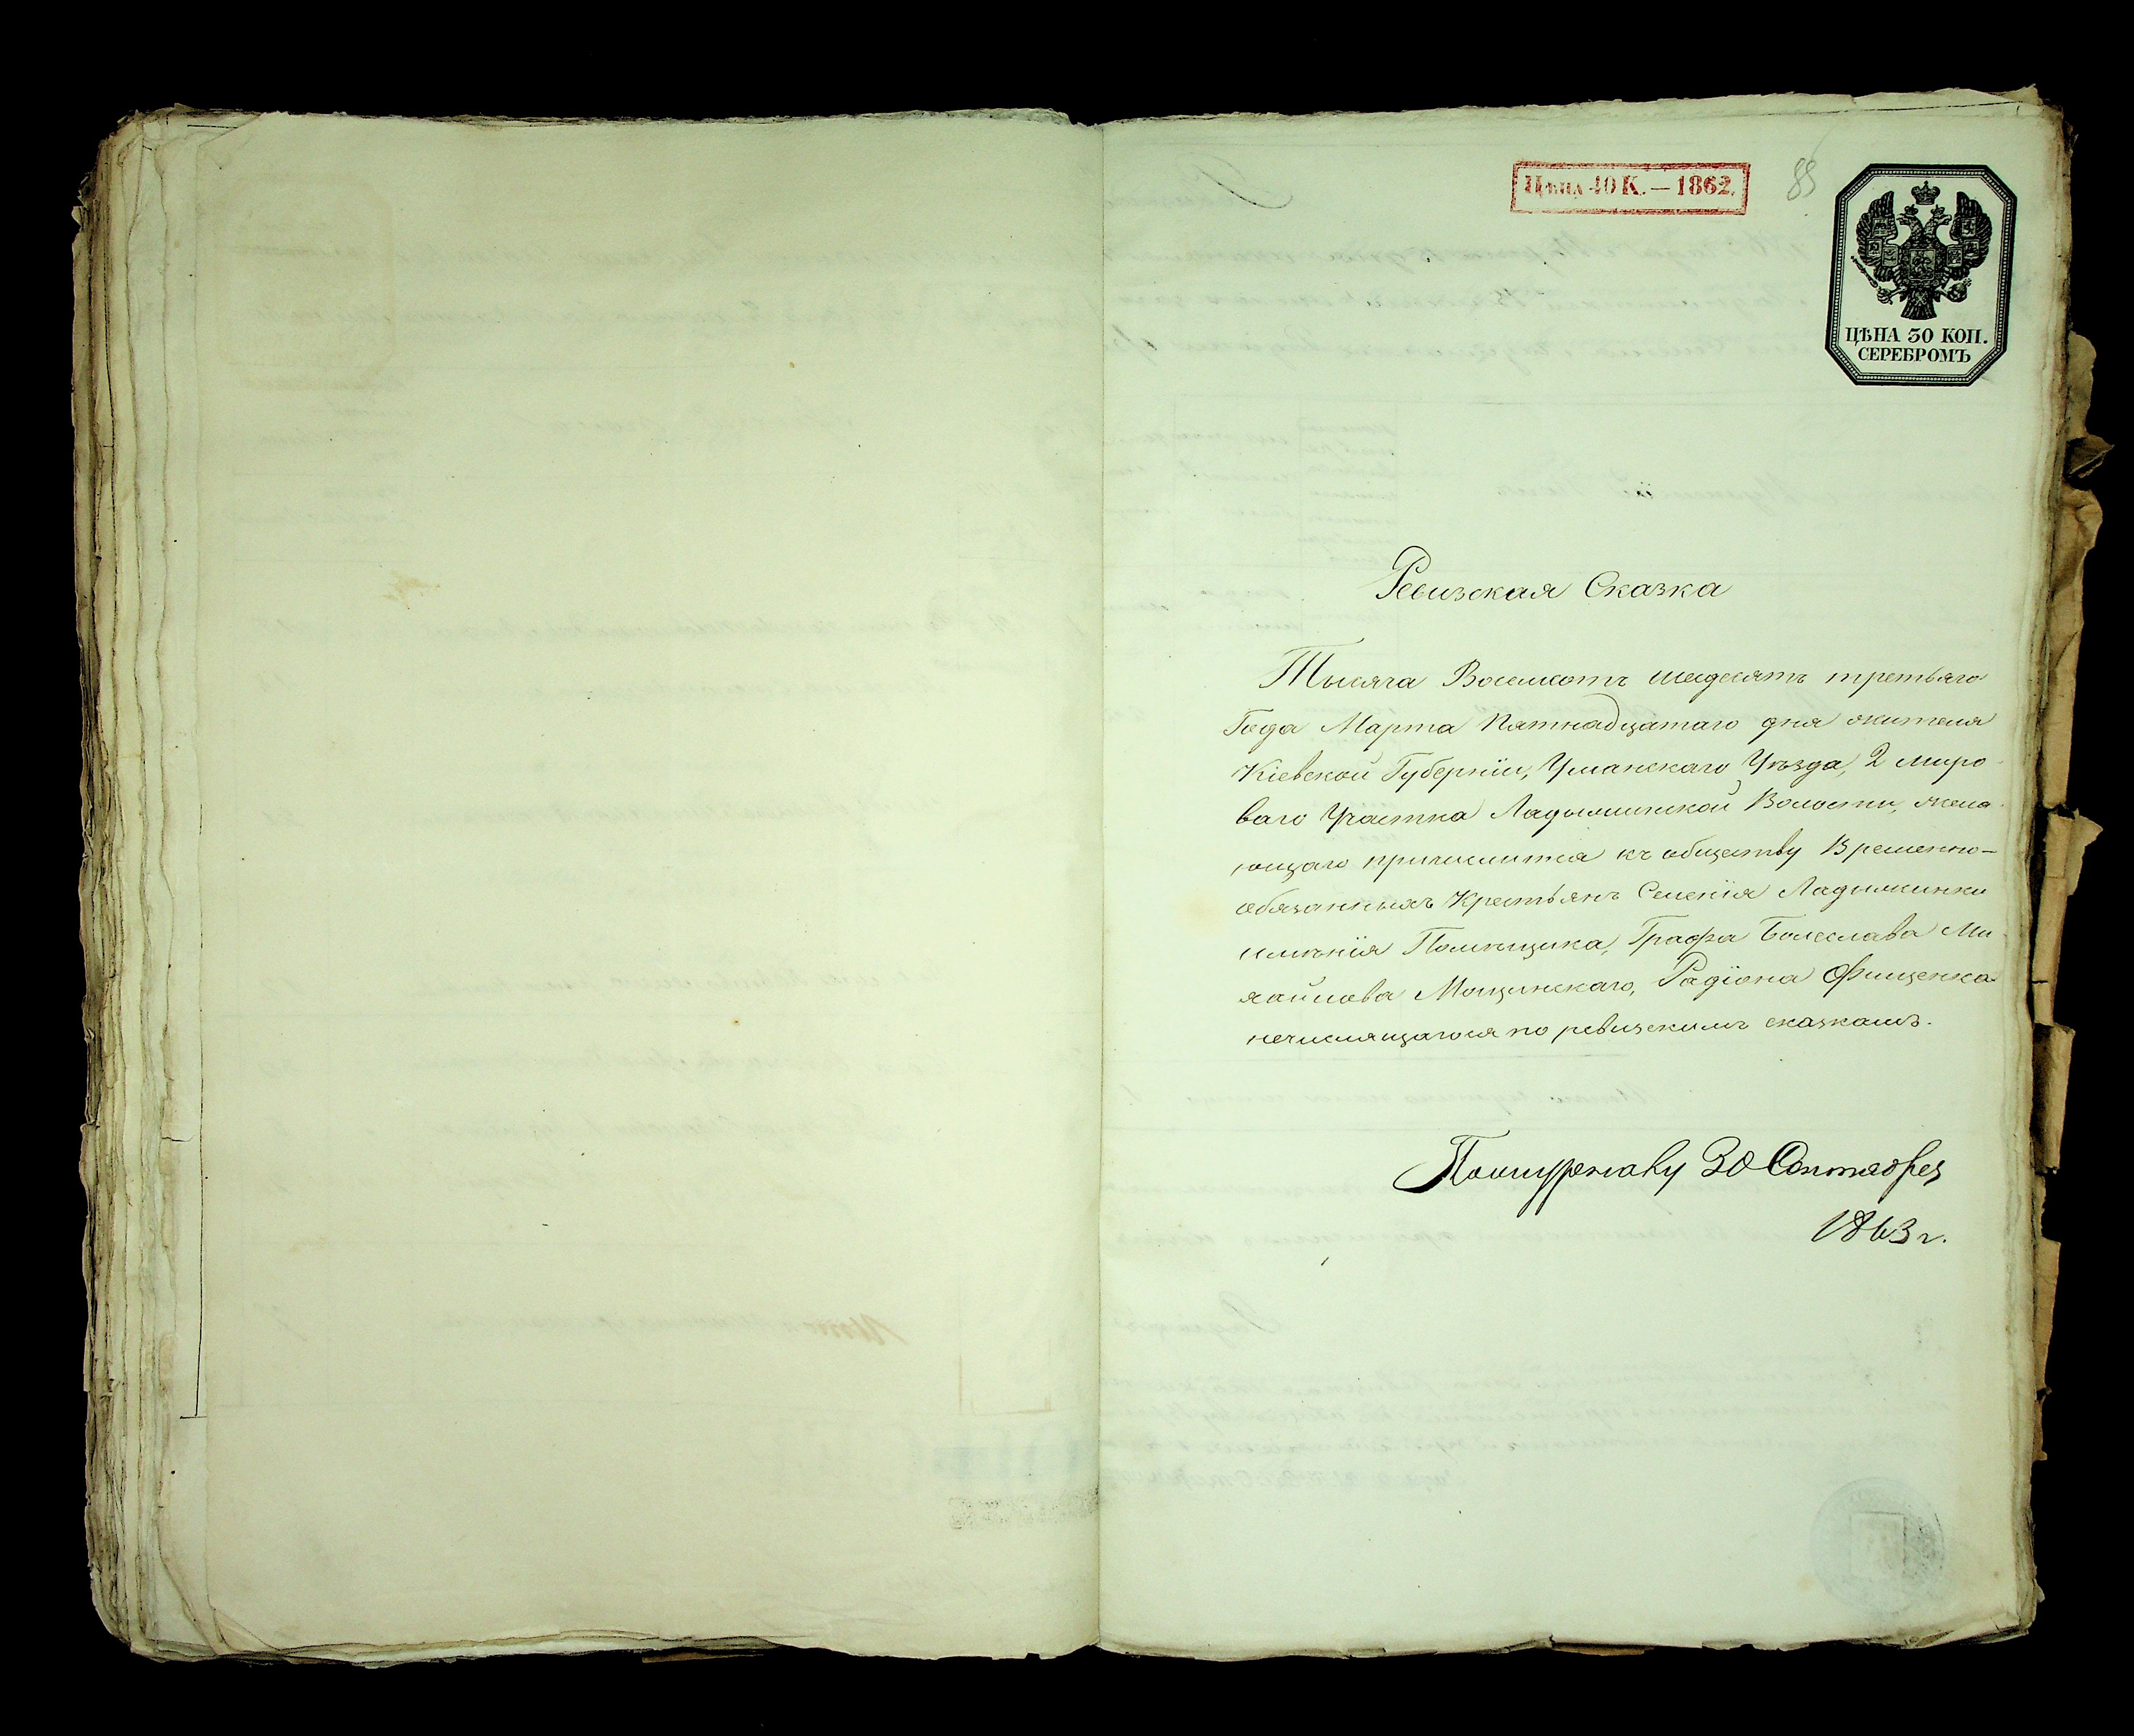 Цѣна 40 К. — 1862.
85
ЦѢНА 30 КОП.
СЕРЕБРОМЪ
Ревизская Сказка
Тысяча Восемсотъ шедесятъ третьяго
Года Марта Пятнадцатаго дня жителя
Кіевской Губерніи, Уманскаго Уѣзда, 2 миро-
ваго Участка Ладыжинской Волости, жела-
ющаго причислится къ обществу Временно-
обязанныхъ Крестьянъ Селенія Ладыжинки
имѣнія Помѣщика, Графа Болеслава Ми-
хайлова Мощинскаго, Радіона Фищенка
нечислящагося по ревизскимъ сказкамъ.
30 Октября
1863 г.